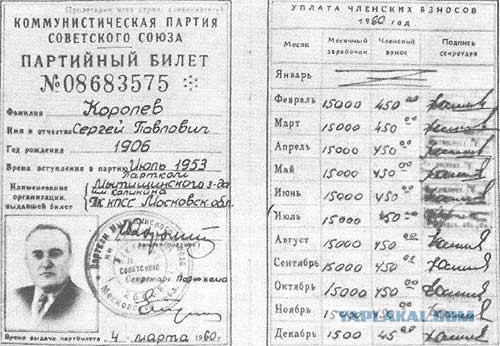 Пролетарии всех стран, соединяйтесь!
КОММУНИСТИЧЕСКАЯ ПАРТИЯ
СОВЕТСКОГО СОЮЗА
ПАРТИЙНЫЙ БИЛЕТ
№08683575
Фамилия Королев
Имя и отчество Сергей Павлович
Год рождения 1906
Время вступления в партию Июль 1953
Парткой
Наименование Мытищинского з-да
им. Калинина
организации,
выдавшей билет ГК КПСС Московск. обл.
Секретарь Парткома
Время выдачи партбилета 4 марта 1960 г.
УПЛАТА ЧЛЕНСКИХ ВЗНОСОВ
1960 год
Месяц Месячный заработок Членский взнос Подпись секретаря
Январь
Февраль 15000 450 00
Март 15000 450 00
Апрель 15000 450 00
Май 15000 450 00
Июнь 15000 450 00
Июль 15000 450 00
Август 15000 450 00
Сентябрь 15000 450 00
Октябрь 15000 450 00
Ноябрь 15000 450 00
Декабрь 1500 45 00
YAPLAKAL.COM